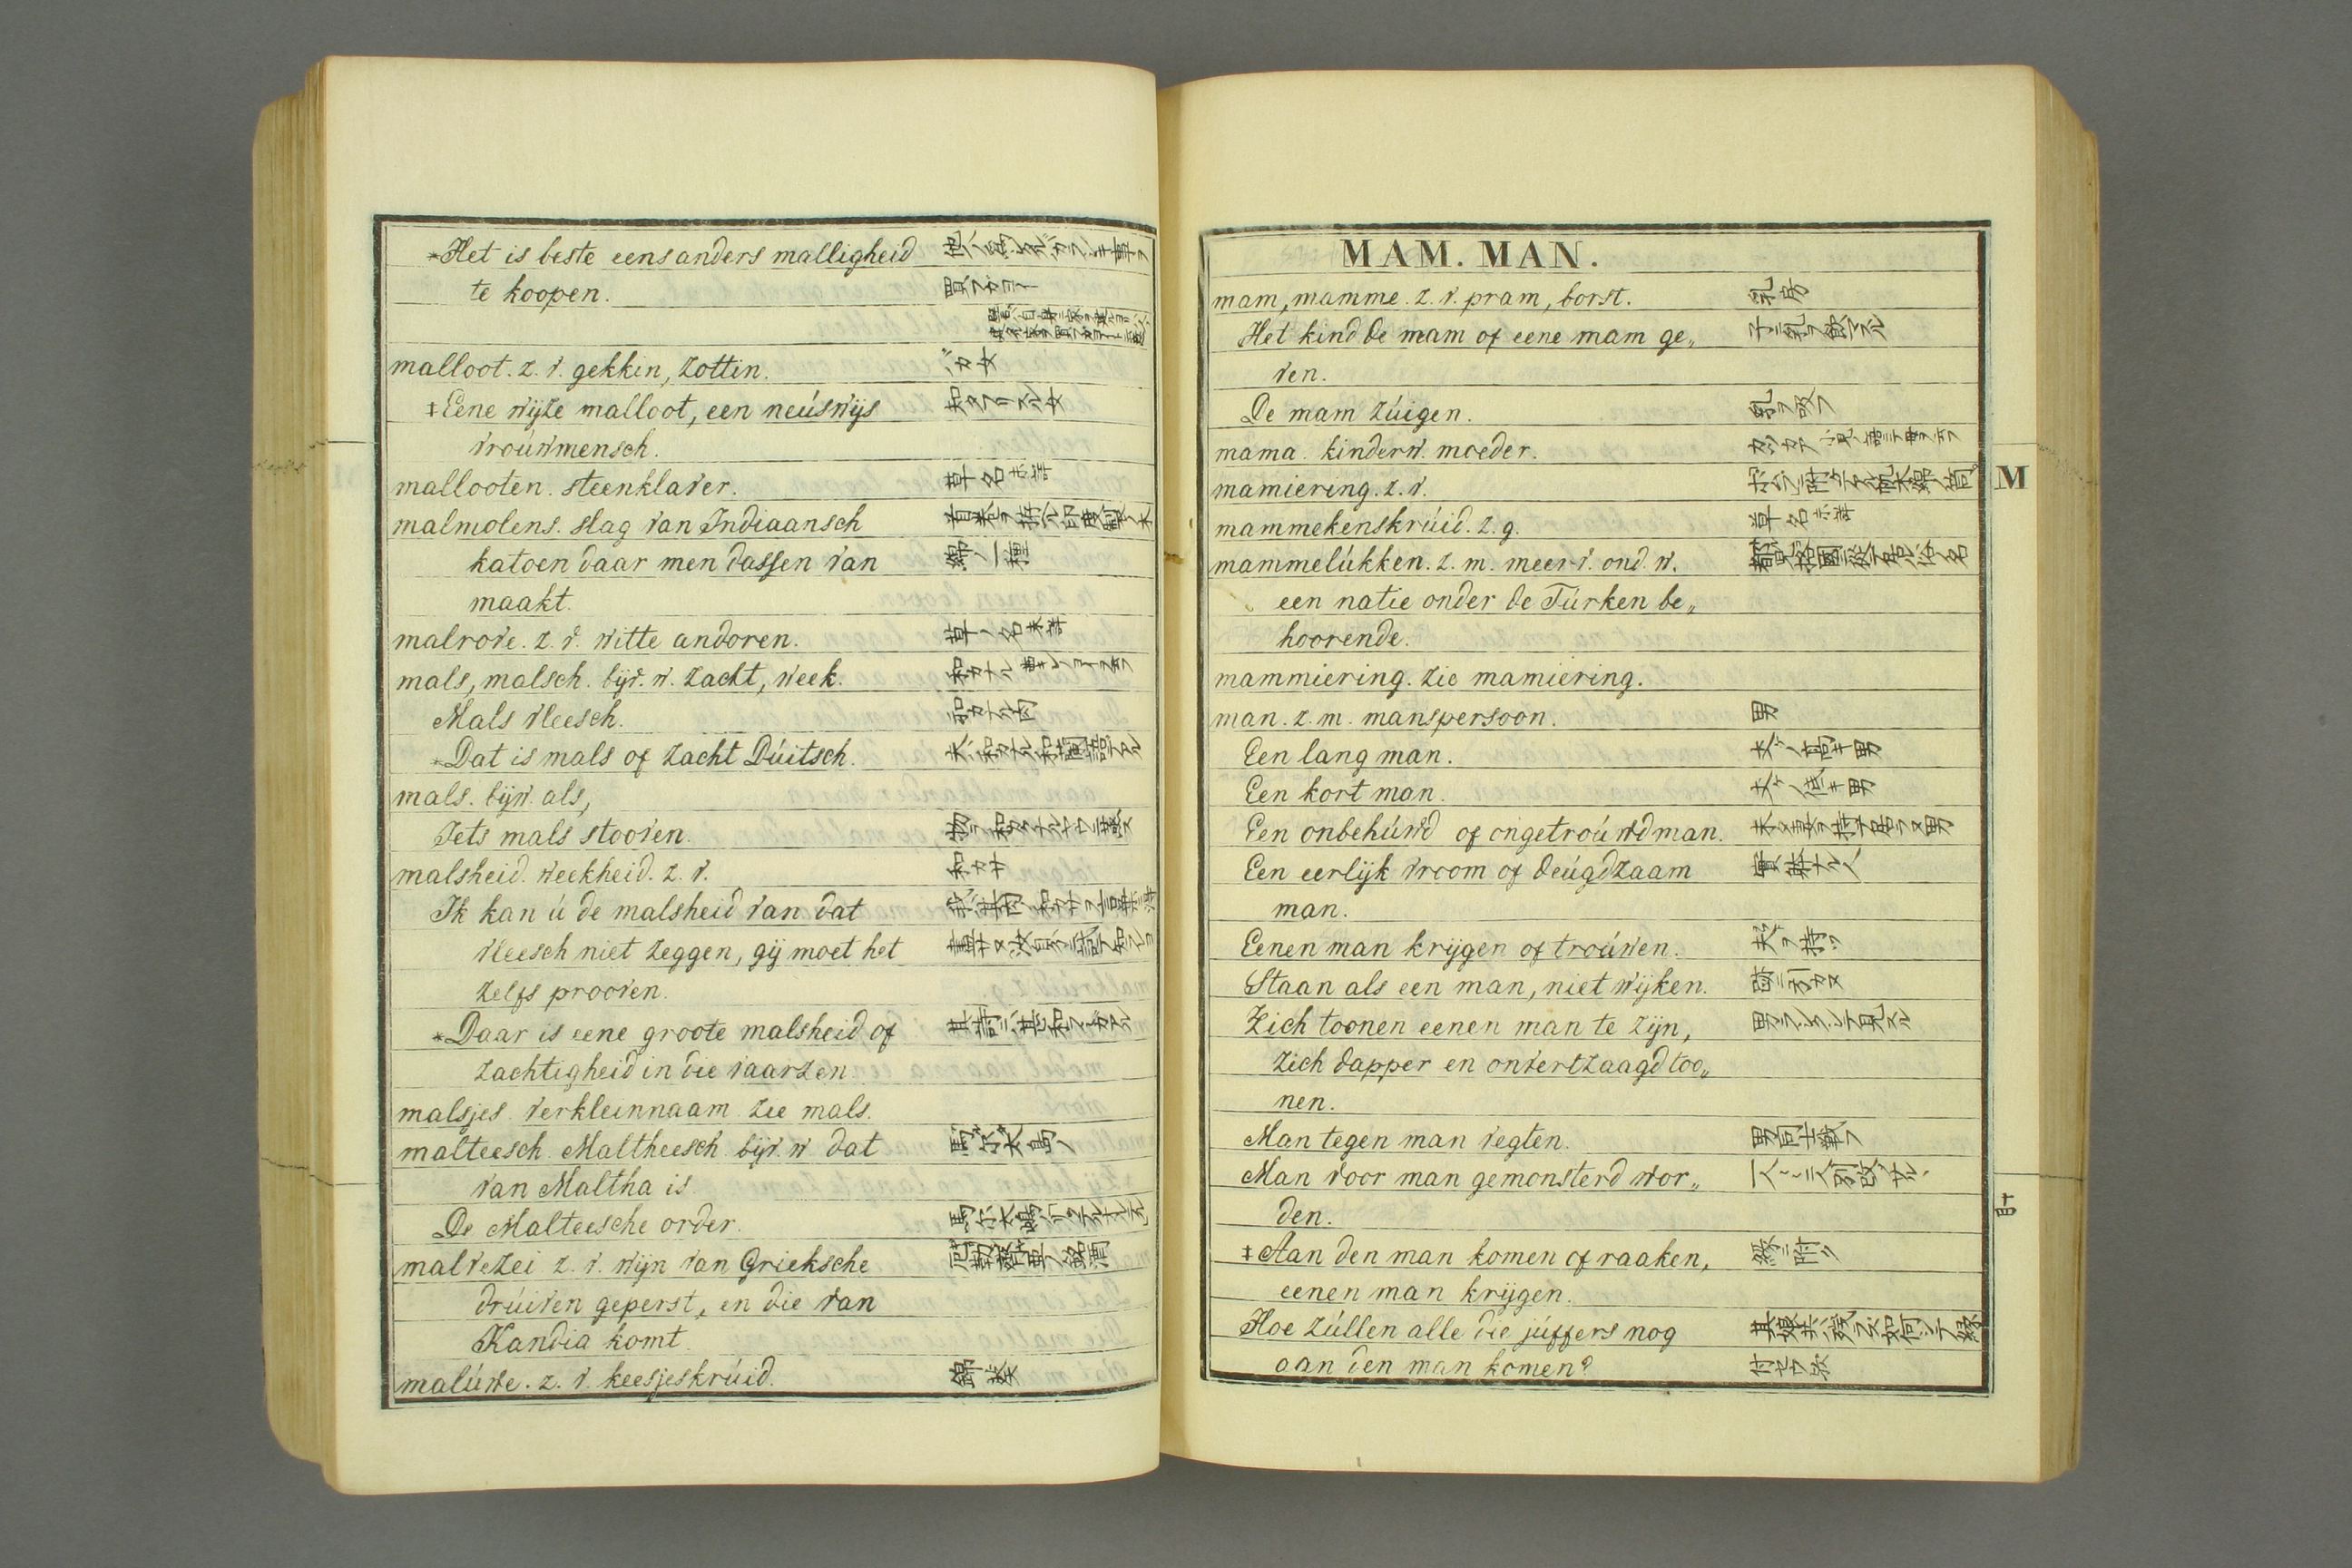 *Het is beste eens anders malligheid
te koopen.
malloot. z. v. gekkin, zottin. バカ女
‡Eene wijze malloot, een neúswijs
vroúwmensch.
mallooten. steenklaver. 草名 未詳
malmolens. slag van Indiaansch
katoen daar men dassen van 綿ノ一種
maakt.
malrove. z. v. witte andoren. 草ノ名 未詳
mals, malsch. bijv. w. zacht, week.
Mals vleesch. 和カナル肉
*Dat is mals of zacht Dúitsch.
mals. bijw. als,
Iets mals stooven.
malsheid. weekheid. z. v. 和カサ
Ik kan ú de malsheid van dat
vleesch niet zeggen, gij moet het
zelfs prooven.
*Daar is eene groote malsheid of
zachtigheid in die vaarzen
malsjes verkleinnaam zie mals.
malteesch. Maltheesch bijv. w dat
van Maltha is
De Malteesche order.
malvezei z. v. wijn van Grieksche
drúiven geperst, en die van
Kandia komt.
malúwe. z. v. keesjeskrúid. 錦葵
MAM. MAN.
mam, mamme. z. v. pram, borst. 乳房
Het kind de mam of eene mam ge„ 子ニ乳ヲ飲マスル
ven.
De mam zúigen. 乳ヲ吸フ
mama. kinderw. moeder.
mamiering. z. v.
mammekenskrúid. z. g. 草名 未詳
mammelúkken. z. m. meerv. ond. w.
een natie onder de Túrken be„
hoorende.
mammiering. zie mamiering.
man. z. m. manspersoon. 男
Een lang man. 丈ケノ高キ男
Een kort man. 丈ケノ低キ男
Een onbehúwd of ongetroúwd man. 未タ妻ヲ持テ居ラヌ男
Een eerlijk vroom of deúgdzaam 實躰ナル人
man.
Eenen man krijgen of troúwen. 夫ヲ持ツ
Staan als een man, niet wijken.
Zich toonen eenen man te zijn,
zich dapper en onvertzaagd too„
nen.
Man tegen man vegten. 男同士戰フ
Man voor man gemonsterd wor„
den.
‡Aan den man komen of raaken, 縁ニ附ク
eenen man krijgen.
Hoe zúllen alle die júffers nog
aan den man komen?
M